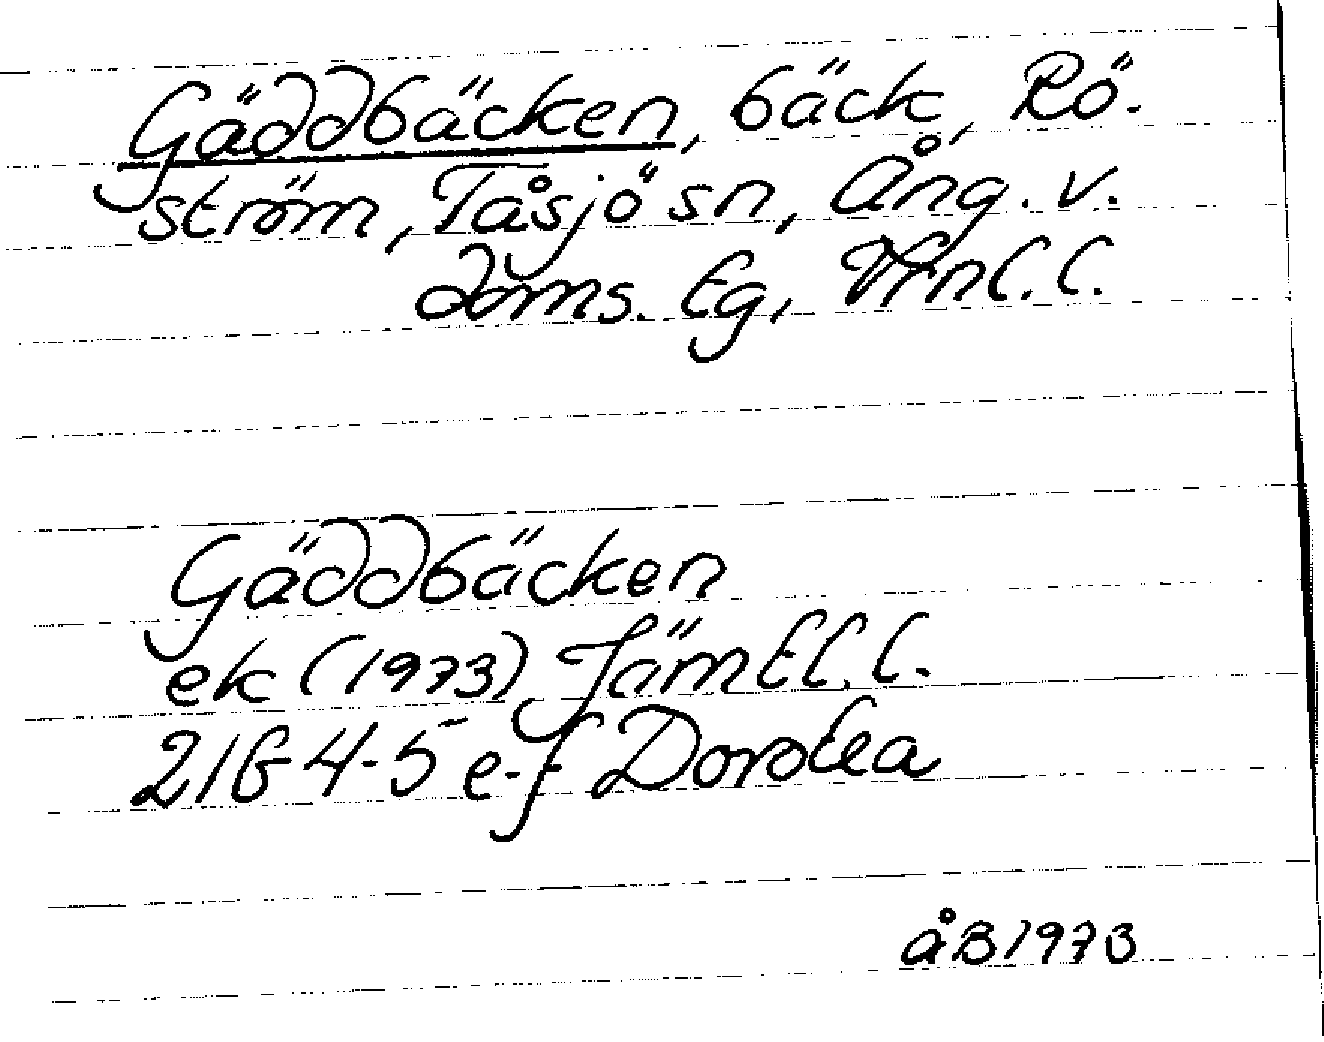 Gäddbäcken, bäck, Rö-
ström, Tåsjö sn, Ång. v.
doms. Eg, Vrnl. l.
Gäddbäcken
ek (1973) Jämtl. l.
21G-4-5 e-f Dorotea
åB 1973